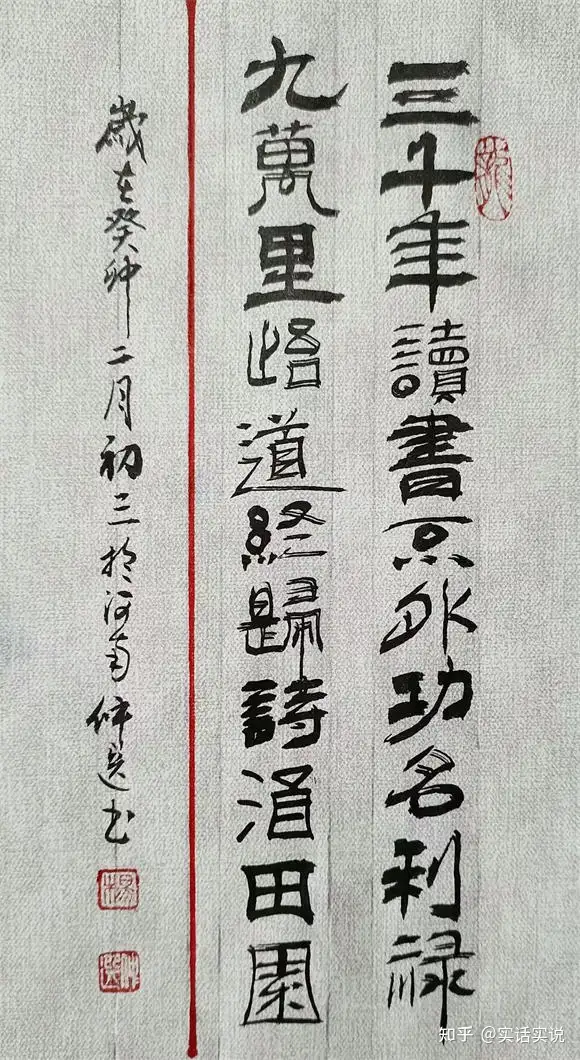 三十年讀書不外功名利祿
九萬里路道終歸詩酒田園
歲在癸卯二月初三於河南仲選書
楊
仲選
知乎 @实话实说